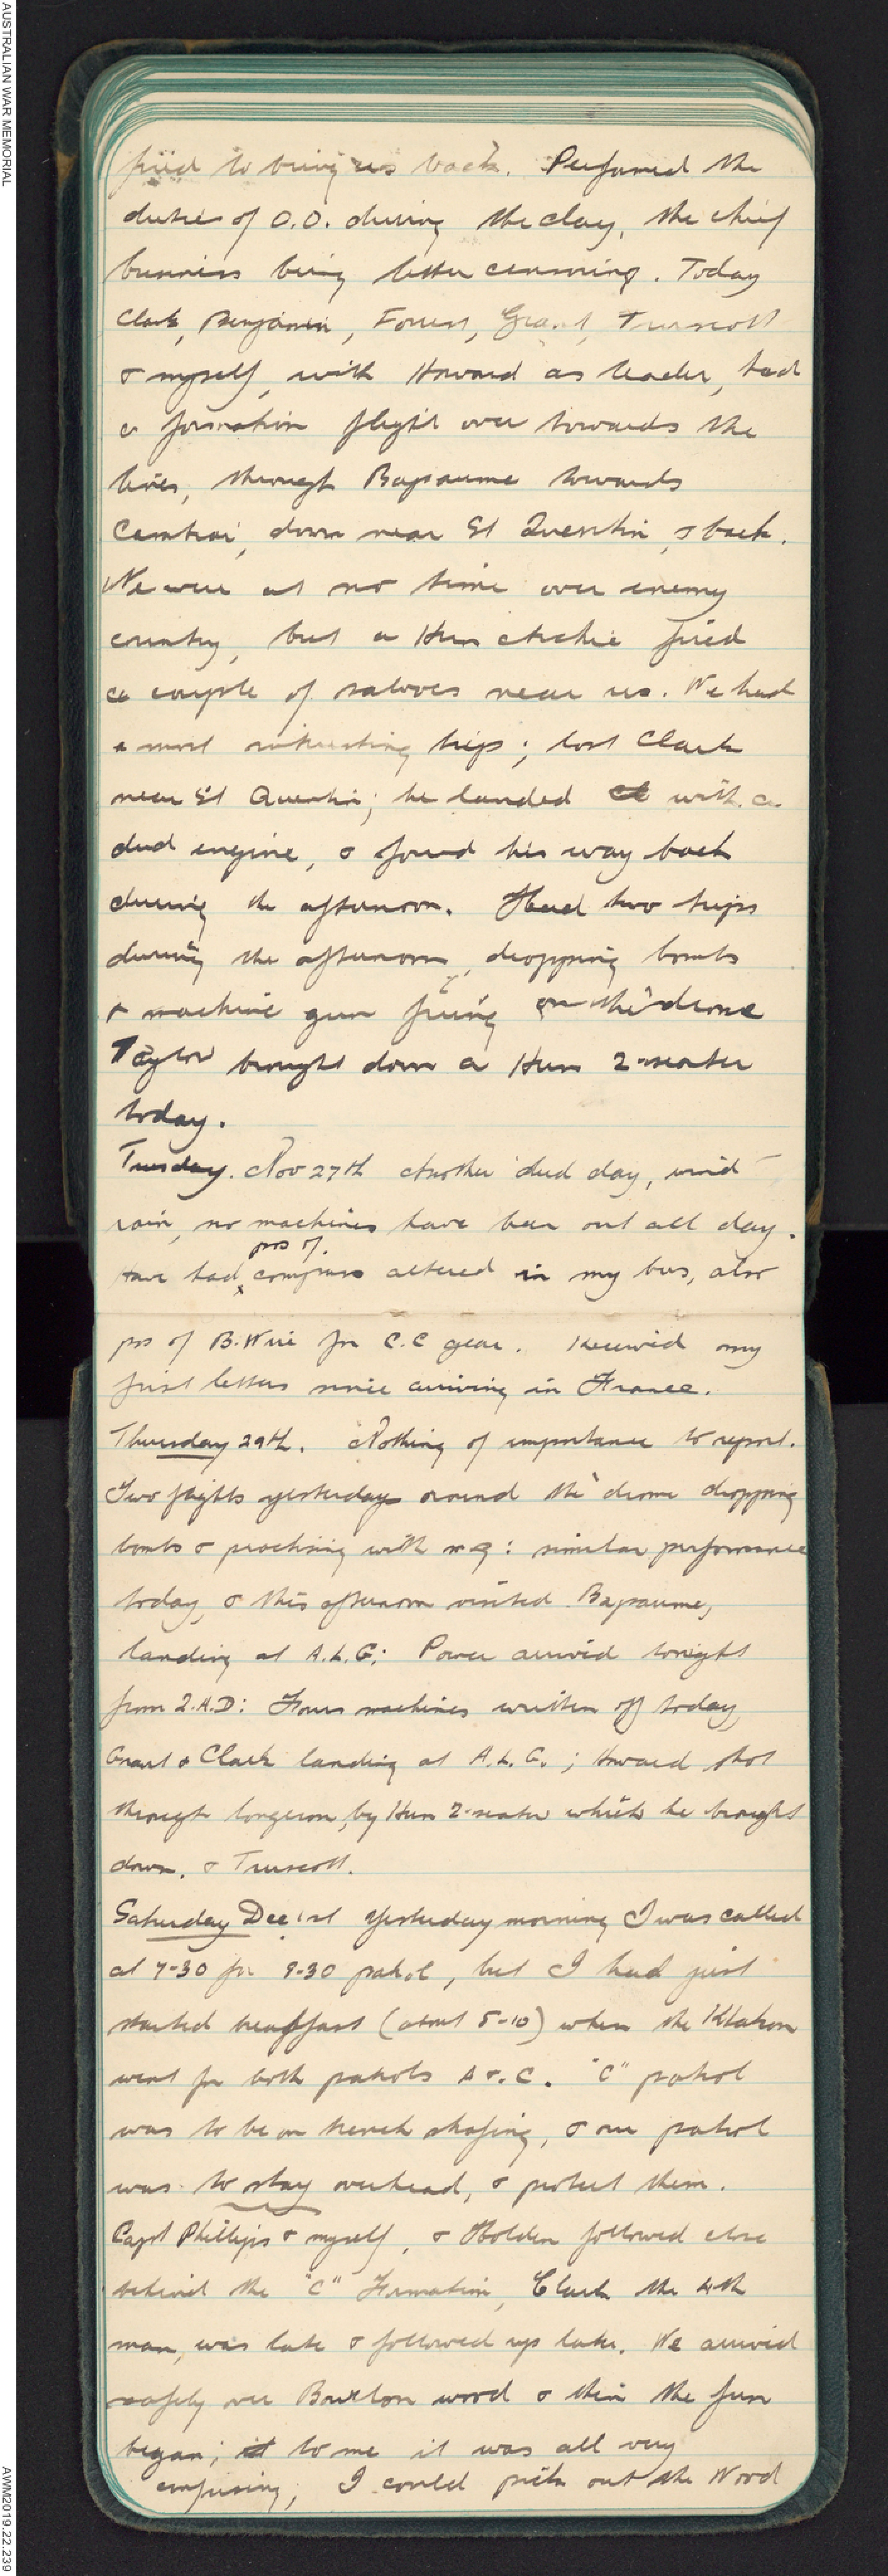 AUSTRALIAN WAR MEMORIAL
fired to bring us back. Performed the
duties of O.O. during the day, the chief
business being letter censoring. Today
Clark, Benjamin, Forrest, Grant, Truscott
& myself, with Howard as leader, had
a formation flight over towards the
lines, through Bapaume towards
Cambrai, down near St Quentin, & back.
We were at no time over enemy
country, but a Hun archie fired
a couple of salvoes near us. We had
a most interesting trip; lost Clark
near St Quentin; he landed with a
dud engine, & found his way back
during the afternoon. Had two trips
during the afternoon, dropping bombs
& machine gun firing on the 'drome
Taylor brought down a Hun 2-seater
today.
Tuesday. Nov 27th Another dud day, wind
rain, no machines have been out all day.
pos of.
Have had compass altered in my bus, also
pos of B. Wire for C.C gear. Received my
first letters since arriving in France.
Thursday 29th. Nothing of importance to report.
Two flights yesterday around the 'drome dropping
bombs & practising with m g: similar performance
today, & this afternoon visited Bapaume,
landing at A.L.G; Power arrived tonight
from 2.A.D: Four machines written off today,
Grant & Clark landing at A.L.G.; Howard shot
through longeron, by Hun 2-seater which he brought
down, & Truscott.
Saturday Dec 1st Yesterday morning I was called
at 7-30 for 9-30 patrol, but I had just
started breakfast (about 8-10) when the Klaxon
went for both patrols A & C. "C" patrol
was to be on trench strafing, & our patrol
was to stay overhead, & protect them.
Capt Phillips & myself, & Holden followed close
behind the "C" Formation, Clark the 4th
man, was late & followed up later. We arrived
safely over Bourlon wood & then the fun
began; to me it was all very
confusing; I could pick out the Wood
AWM2019.22.239